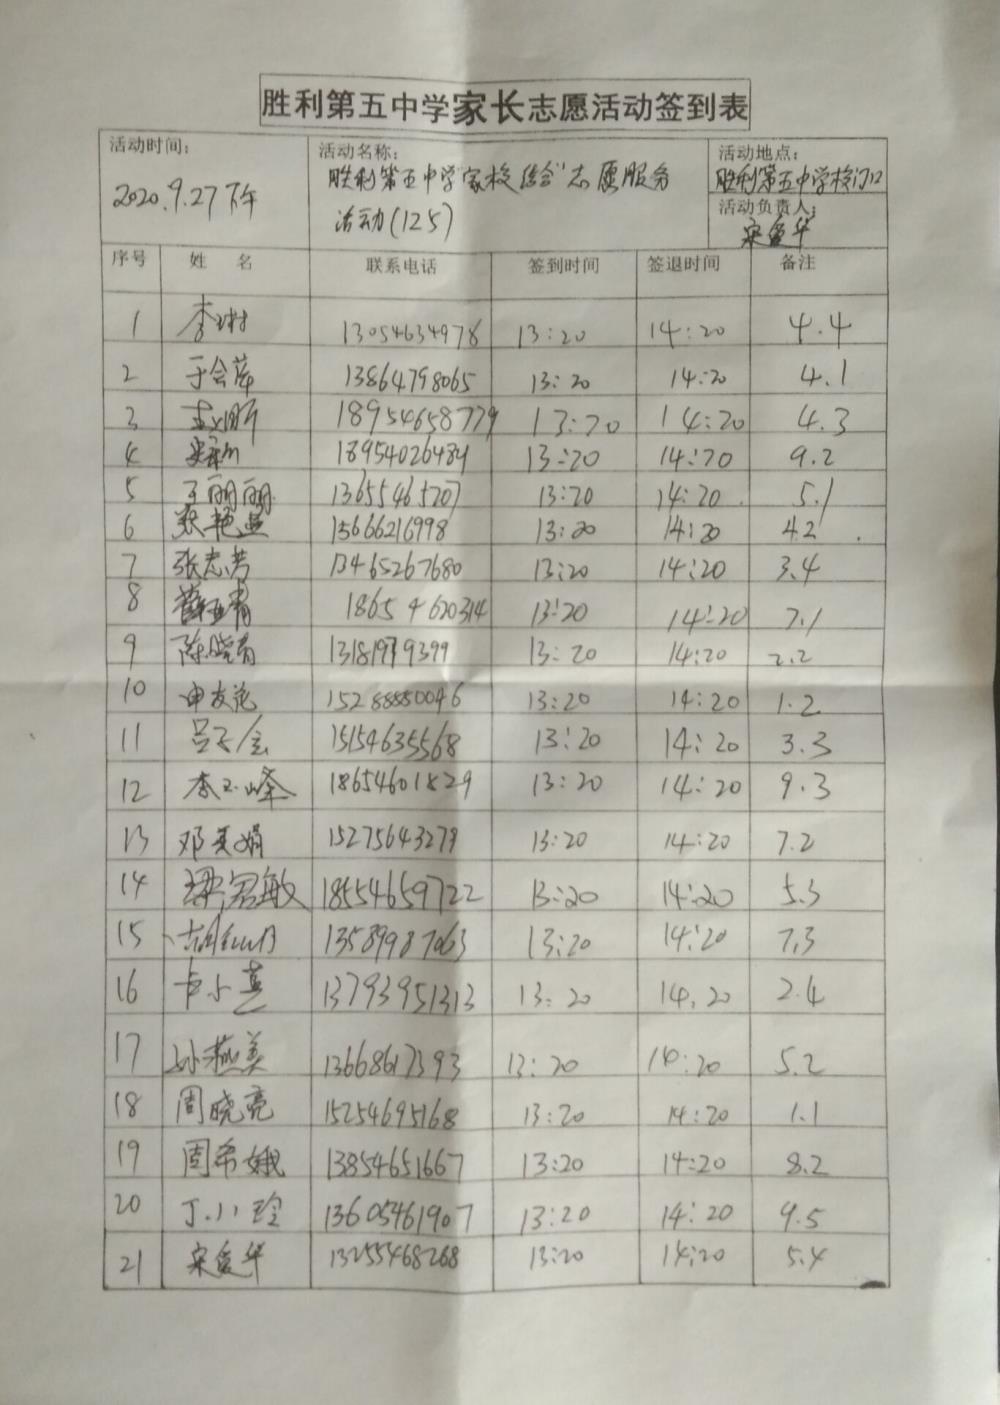 胜利第五中学家长志愿活动签到表
活动时间： 活动名称： 活动地点：
2020.9.27下午 胜利第五中学"家校结合"志愿服务 胜利第五中学校门口
活动(125) 活动负责人：
宋爱华
序号 姓 名 联系电话 签到时间 签退时间 备注
1 李树 13054634978 13:20 14:20 4.4
2 于会萍 13864798065 13:20 14:20 4.1
3 18954658779 13:20 14:20 4.3
4 18954026484 13:20 14:20 9.2
5 王丽丽 13655465207 13:20 14:20 5.1
6 张艳 15666216998 13:20 14:20 4.2
7 张志芳 13465267680 13:20 14:20 3.4
8 18654620314 13:20 14:20 7.1
9 陈晓青 13181979399 13:20 14:20 2.2
10 申友花 15288850046 13:20 14:20 1.2
11 吕子会 15154635568 13:20 14:20 3.3
12 李玉峰 18654601829 13:20 14:20 9.3
13 邓美娟 15275643279 13:20 14:20 7.2
14 梁君敏 18554659722 13:20 14:20 5.3
15 13589987063 13:20 14:20 7.3
16 卡小燕 13793951313 13:20 14:20 2.4
17 孙燕美 13668617393 13:20 14:20 5.2
18 周晓亮 15254695168 13:20 14:20 1.1
19 周希娥 13854651667 13:20 14:20 8.2
20 丁小玲 13605461907 13:20 14:20 9.5
21 宋爱华 13255468268 13:20 14:20 5.4